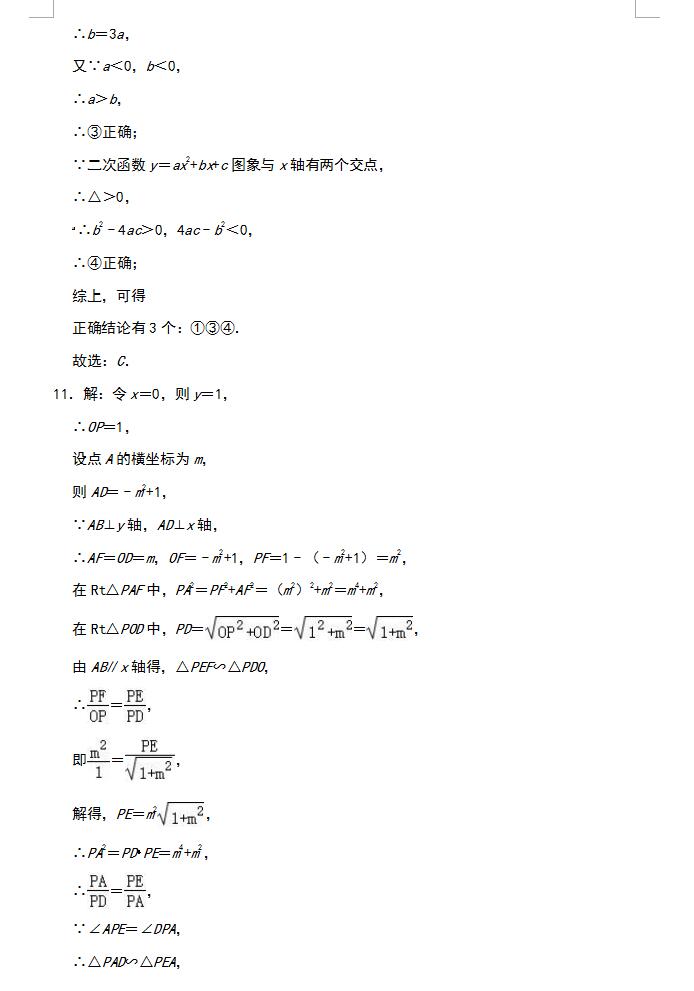 ∴b＝3a，
又∵a＜0，b＜0，
∴a＞b，
∴③正确；
∵二次函数y＝ax²+bx+c图象与x轴有两个交点，
∴△＞0，
∴b²﹣4ac＞0，4ac﹣b²＜0，
∴④正确；
综上，可得
正确结论有3个：①③④．
故选：C．
11．解：令x＝0，则y＝1，
∴OP＝1，
设点A的横坐标为m，
则AD＝﹣m²+1，
∵AB⊥y轴，AD⊥x轴，
∴AF＝OD＝m，OF＝﹣m²+1，PF＝1﹣（﹣m²+1）＝m²，
在Rt△PAF中，PA²＝PF²+AF²＝（m²）²+m²＝m⁴+m²，
在Rt△POD中，PD＝√(OP²+OD²)＝√(1²+m²)＝√(1+m²)，
由AB∥x轴得，△PEF∽△PDO，
∴PF/OP＝PE/PD，
即m²/1＝PE/√(1+m²)，
解得，PE＝m²√(1+m²)，
∴PA²＝PD•PE＝m⁴+m²，
∴PA/PD＝PE/PA，
∵∠APE＝∠DPA，
∴△PAD∽△PEA，